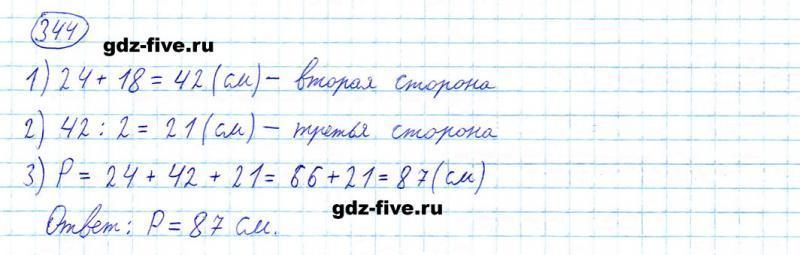 344
gdz-five.ru
1) 24 + 18 = 42 (см) - вторая сторона
2) 42 : 2 = 21 (см) - третья сторона
3) P = 24 + 42 + 21 = 66 + 21 = 87 (см)
gdz-five.ru
Ответ: P = 87 см.